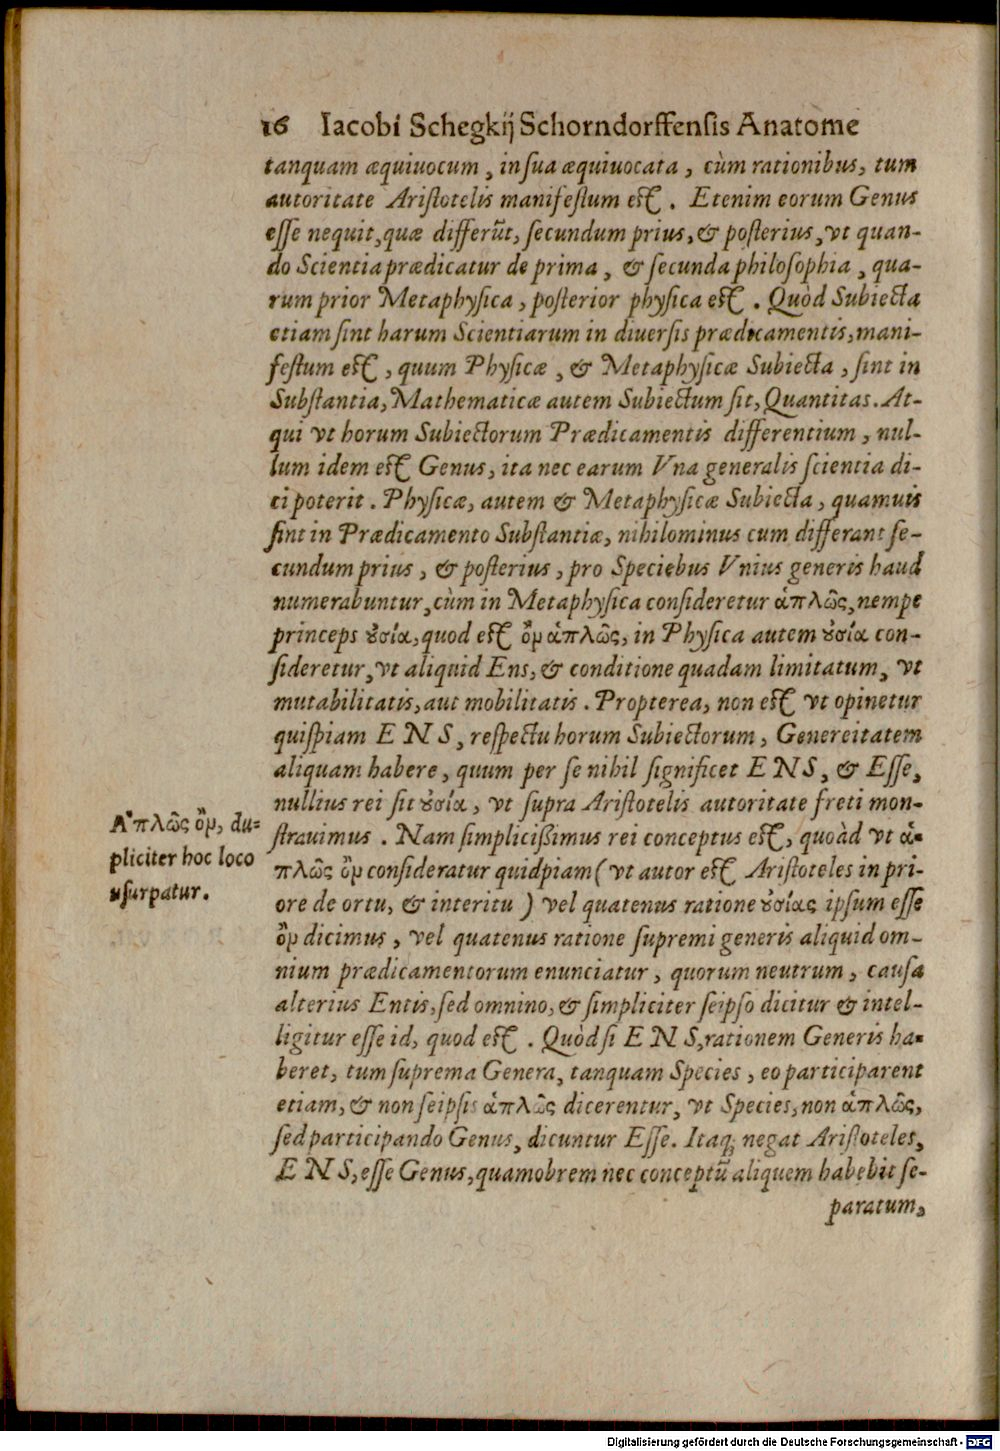 16 Iacobi Schegkij Schorndorffensis Anatome
tanquam æquiuocum, in sua æquiuocata, cùm rationibus, tum
autoritate Aristotelis manifestum est. Etenim eorum Genus
esse nequit, quæ differũt, secundum prius, & posterius, vt quan-
do Scientia prædicatur de prima, & secunda philosophia, qua-
rum prior Metaphysica, posterior physica est. Quòd Subiecta
etiam sint harum Scientiarum in diuersis prædicamentis, mani-
festum est, quum Physicæ, & Metaphysicæ Subiecta, sint in
Substantia, Mathematicæ autem Subiectum sit, Quantitas. At-
qui vt horum Subiectorum Prædicamentis differentium, nul-
lum idem est Genus, ita nec earum Vna generalis scientia di-
ci poterit. Physicæ, autem & Metaphysicæ Subiecta, quamuis
sint in Prædicamento Substantiæ, nihilominus cum differant se-
cundum prius, & posterius, pro Speciebus Vnius generis haud
numerabuntur, cùm in Metaphysica consideretur ἁπλῶς, nempe
princeps ȣσία, quod est ὂν ἁπλῶς, in Physica autem ȣσία con-
sideretur, vt aliquid Ens, & conditione quadam limitatum, vt
mutabilitatis, aut mobilitatis. Propterea, non est vt opinetur
quispiam ENS, respectu horum Subiectorum, Genereitatem
aliquam habere, quum per se nihil significet ENS, & Esse,
nullius rei sit ȣσία, vt supra Aristotelis autoritate freti mon-
strauimus. Nam simplicißimus rei conceptus est, quoàd vt ἁ-
πλῶς ὂν consideratur quidpiam (vt autor est Aristoteles in pri-
ore de ortu, & interitu) vel quatenus ratione ȣσίας ipsum esse
ὂν dicimus, vel quatenus ratione supremi generis aliquid om-
nium prædicamentorum enunciatur, quorum neutrum, causa
alterius Entis, sed omnino, & simpliciter seipso dicitur & intel-
ligitur esse id, quod est. Quòd si ENS, rationem Generis ha-
beret, tum suprema Genera, tanquam Species, eo participarent
etiam, & non seipsis ἁπλῶς dicerentur, vt Species, non ἁπλῶς,
sed participando Genus, dicuntur Esse. Itaq; negat Aristoteles,
ENS, esse Genus, quamobrem nec conceptũ aliquem habebit se-
paratum,
Ἁπλῶς ὂν, du-
pliciter hoc loco
usurpatur.
Digitalisierung gefördert durch die Deutsche Forschungsgemeinschaft - DFG